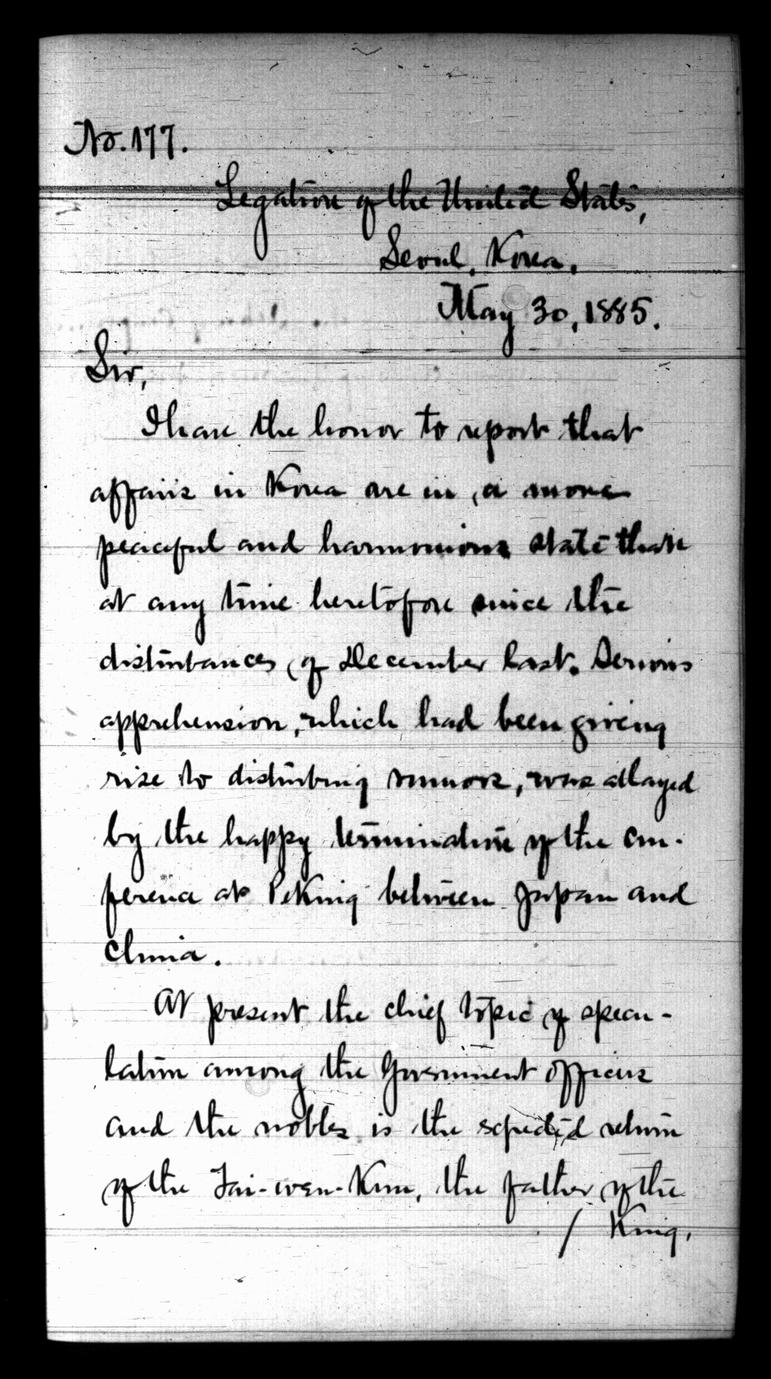 No. 177.
Legation of the United States,
Seoul, Korea,
May 30, 1885.
Sir,
I have the honor to report that
affairs in Korea are in a more
peaceful and harmonious state than
at any time heretofore since the
disturbances of December last. Serious
apprehension, which had been giving
rise to disturbing rumors, was allayed
by the happy termination of the con-
ference at Peking between Japan and
China.
At present the chief topic of specu-
lation among the Government officers
and the nobles is the return
of the Tai-wen-Kun, the father of the
/ King,